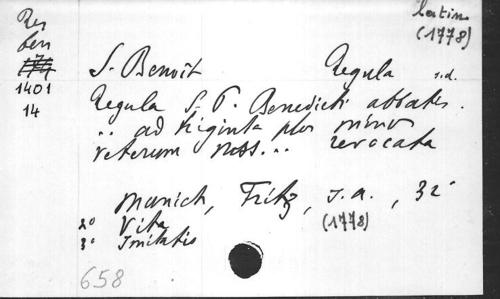 latin
(1778)
Res
ben
1401
14
S. Benoît Regula s.d.
Regula S. P. Benedicti abbatis.
.. ad triginta plus minus
veterum mss... revocata
Munich, Fritz, s.a., 32°
(1778)
2° Vita
3° Imitatio
658